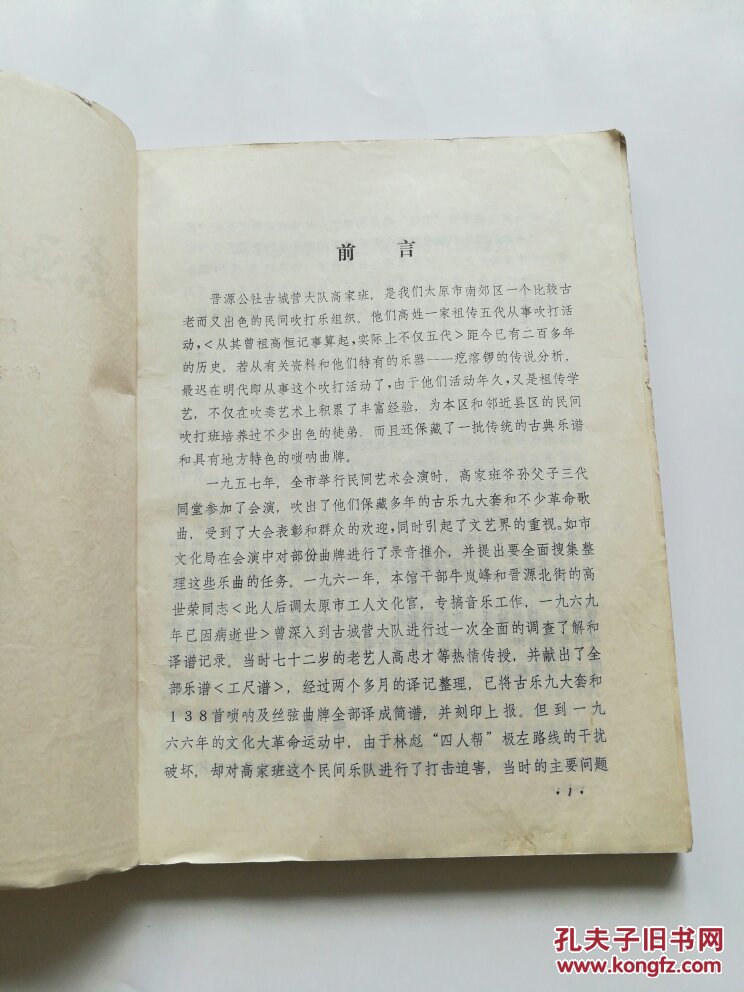 前 言
晋源公社古城营大队高家班，是我们太原市南郊区一个比较古
老而又出色的民间吹打乐组织。他们高姓一家祖传五代从事吹打活
动，<从其曾祖高恒记事算起，实际上不仅五代>距今已有二百多年
的历史，若从有关资料和他们特有的乐器——疙瘩锣的传说分析，
最迟在明代即从事这个吹打活动了，由于他们活动年久，又是祖传学
艺，不仅在吹奏艺术上积累了丰富经验，为本区和邻近县区的民间
吹打班培养过不少出色的徒弟，而且还保藏了一批传统的古典乐谱
和具有地方特色的唢呐曲牌。
一九五七年，全市举行民间艺术会演时，高家班爷孙父子三代
同堂参加了会演，吹出了他们保藏多年的古乐九大套和不少革命歌
曲，受到了大会表彰和群众的欢迎，同时引起了文艺界的重视。如市
文化局在会演中对部份曲牌进行了录音推介，并提出要全面搜集整
理这些乐曲的任务。一九六一年，本馆干部牛岚峰和晋源北街的高
世荣同志<此人后调太原市工人文化宫，专搞音乐工作，一九六九
年已因病逝世>曾深入到古城营大队进行过一次全面的调查了解和
译谱记录。当时七十二岁的老艺人高忠才等热情传授，并献出了全
部乐谱<工尺谱>，经过两个多月的译记整理，已将古乐九大套和
138首唢呐及丝弦曲牌全部译成简谱，并刻印上报。但到一九
六六年的文化大革命运动中，由于林彪“四人帮”极左路线的干扰
破坏，却对高家班这个民间乐队进行了打击迫害，当时的主要问题
·1·
孔夫子旧书网
www.kongfz.com